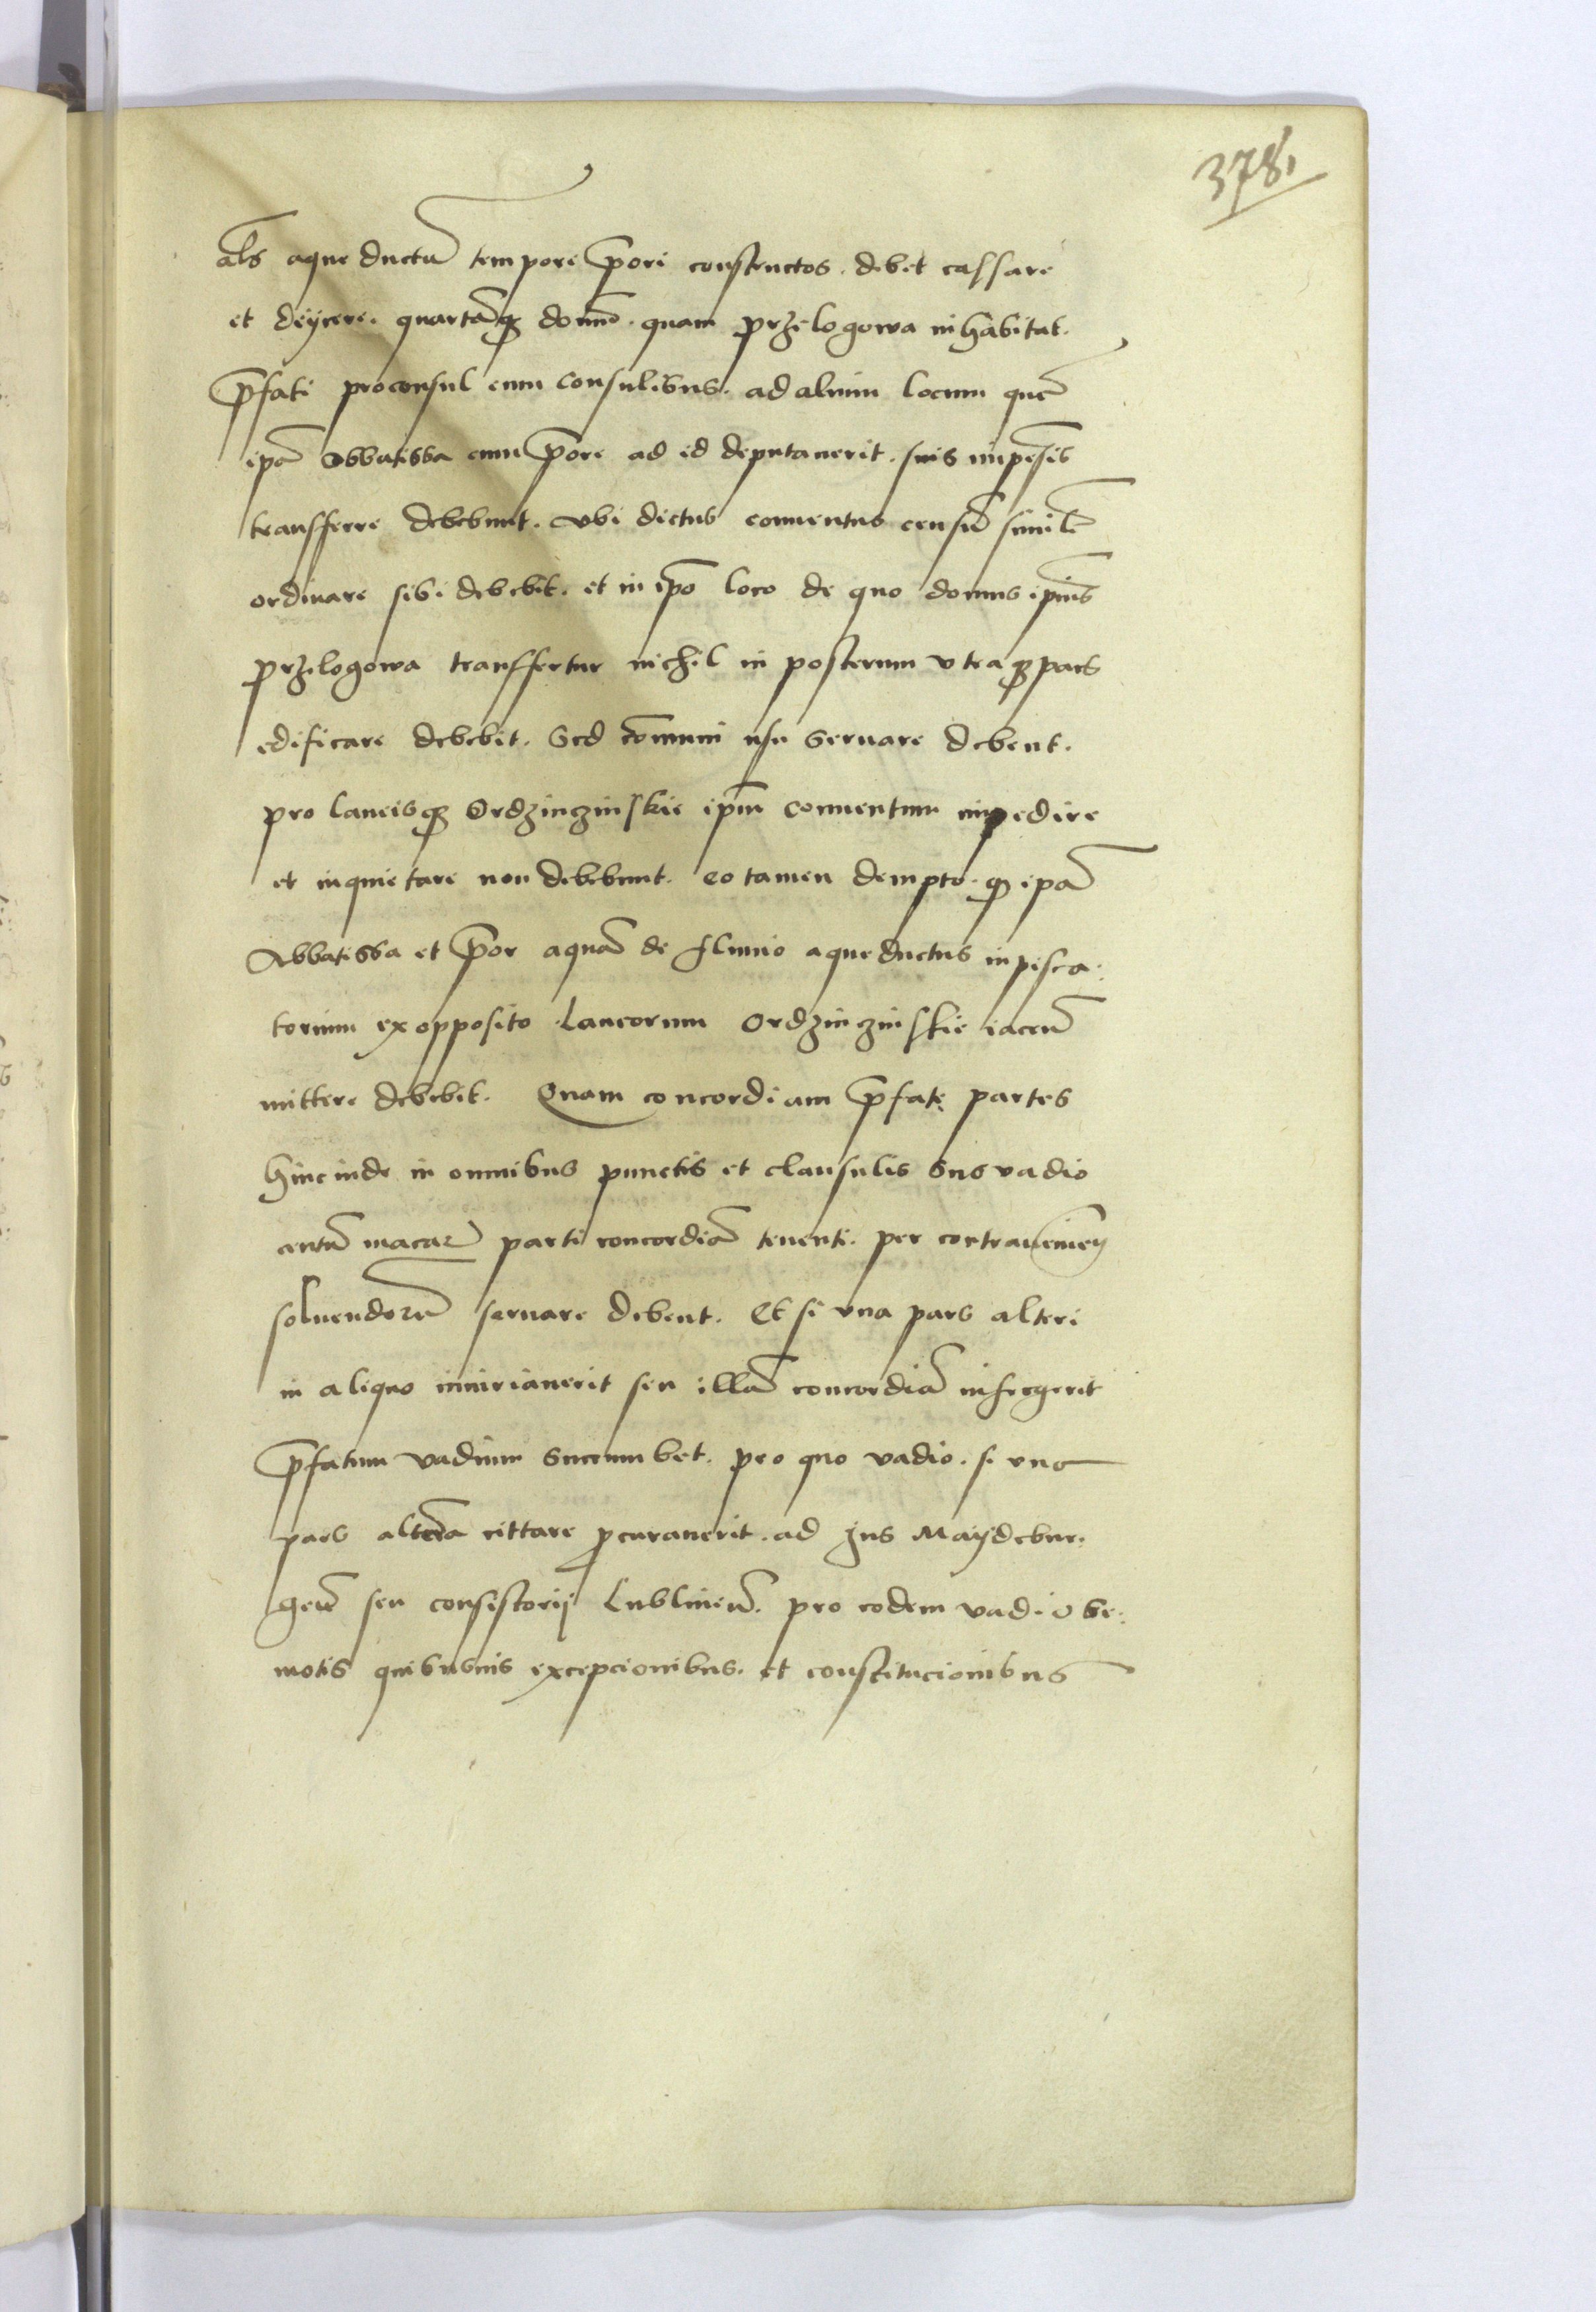 378.
al̅s aque ductu̅ tempore p̅ori constructos. debet cassare
et deycere. quarta̅q̨ domu̅. quam przilogowa inhabitat.
p̅fati proconsul cum consulibus. ad alium locum que̅
ipa̅ Abbatissa cum p̅ore ad id deputauerit. suis impe̅sis
transferre debebunt. vbi dictus conuentus censu̅ simile̅
ordinare sibi debebit. et in ip̅o loco de quo domus ipius̅
przilogowa transfertur nichil in posterum vtraq̨ pars
edificare debebit. Sed com̅uni usu seruare debent.
pro laneisq̨ Ordzinczinskie ip̅m Conuentum impedire
et inquietare non debebunt. eo tamen dempto. q̨ ipa̅
Abbatissa et p̅or aqua̅ de fluuio aque ductus in pisca.
torium ex opposito laneorum Ordzinczinskie iacen̅
mittere debebit. Quam concordiam p̅fate partes
hincinde in omnibus punctis et clausulis sus vadio
centu̅ macar̅ parti concordia̅ tenenti. per contrauenien̅
soluendoru̅ seruare debent. Et si vna pars alteri
in aliquo iniuriauerit seu illa̅ concordia̅ infregerit
p̅fatum vadium succumbet. pro quo vadio. si vna
pars altera̅ cittare p̱curauerit. ad Jus Maydebur.
gen̅ seu consistorij Lublinen̅. pro eodem vadio re.
motis quibusuis excepcionibus. et constitucionibus